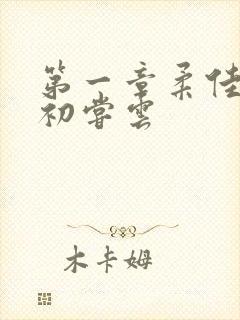 第一章柔佳
初尝云
木卡姆